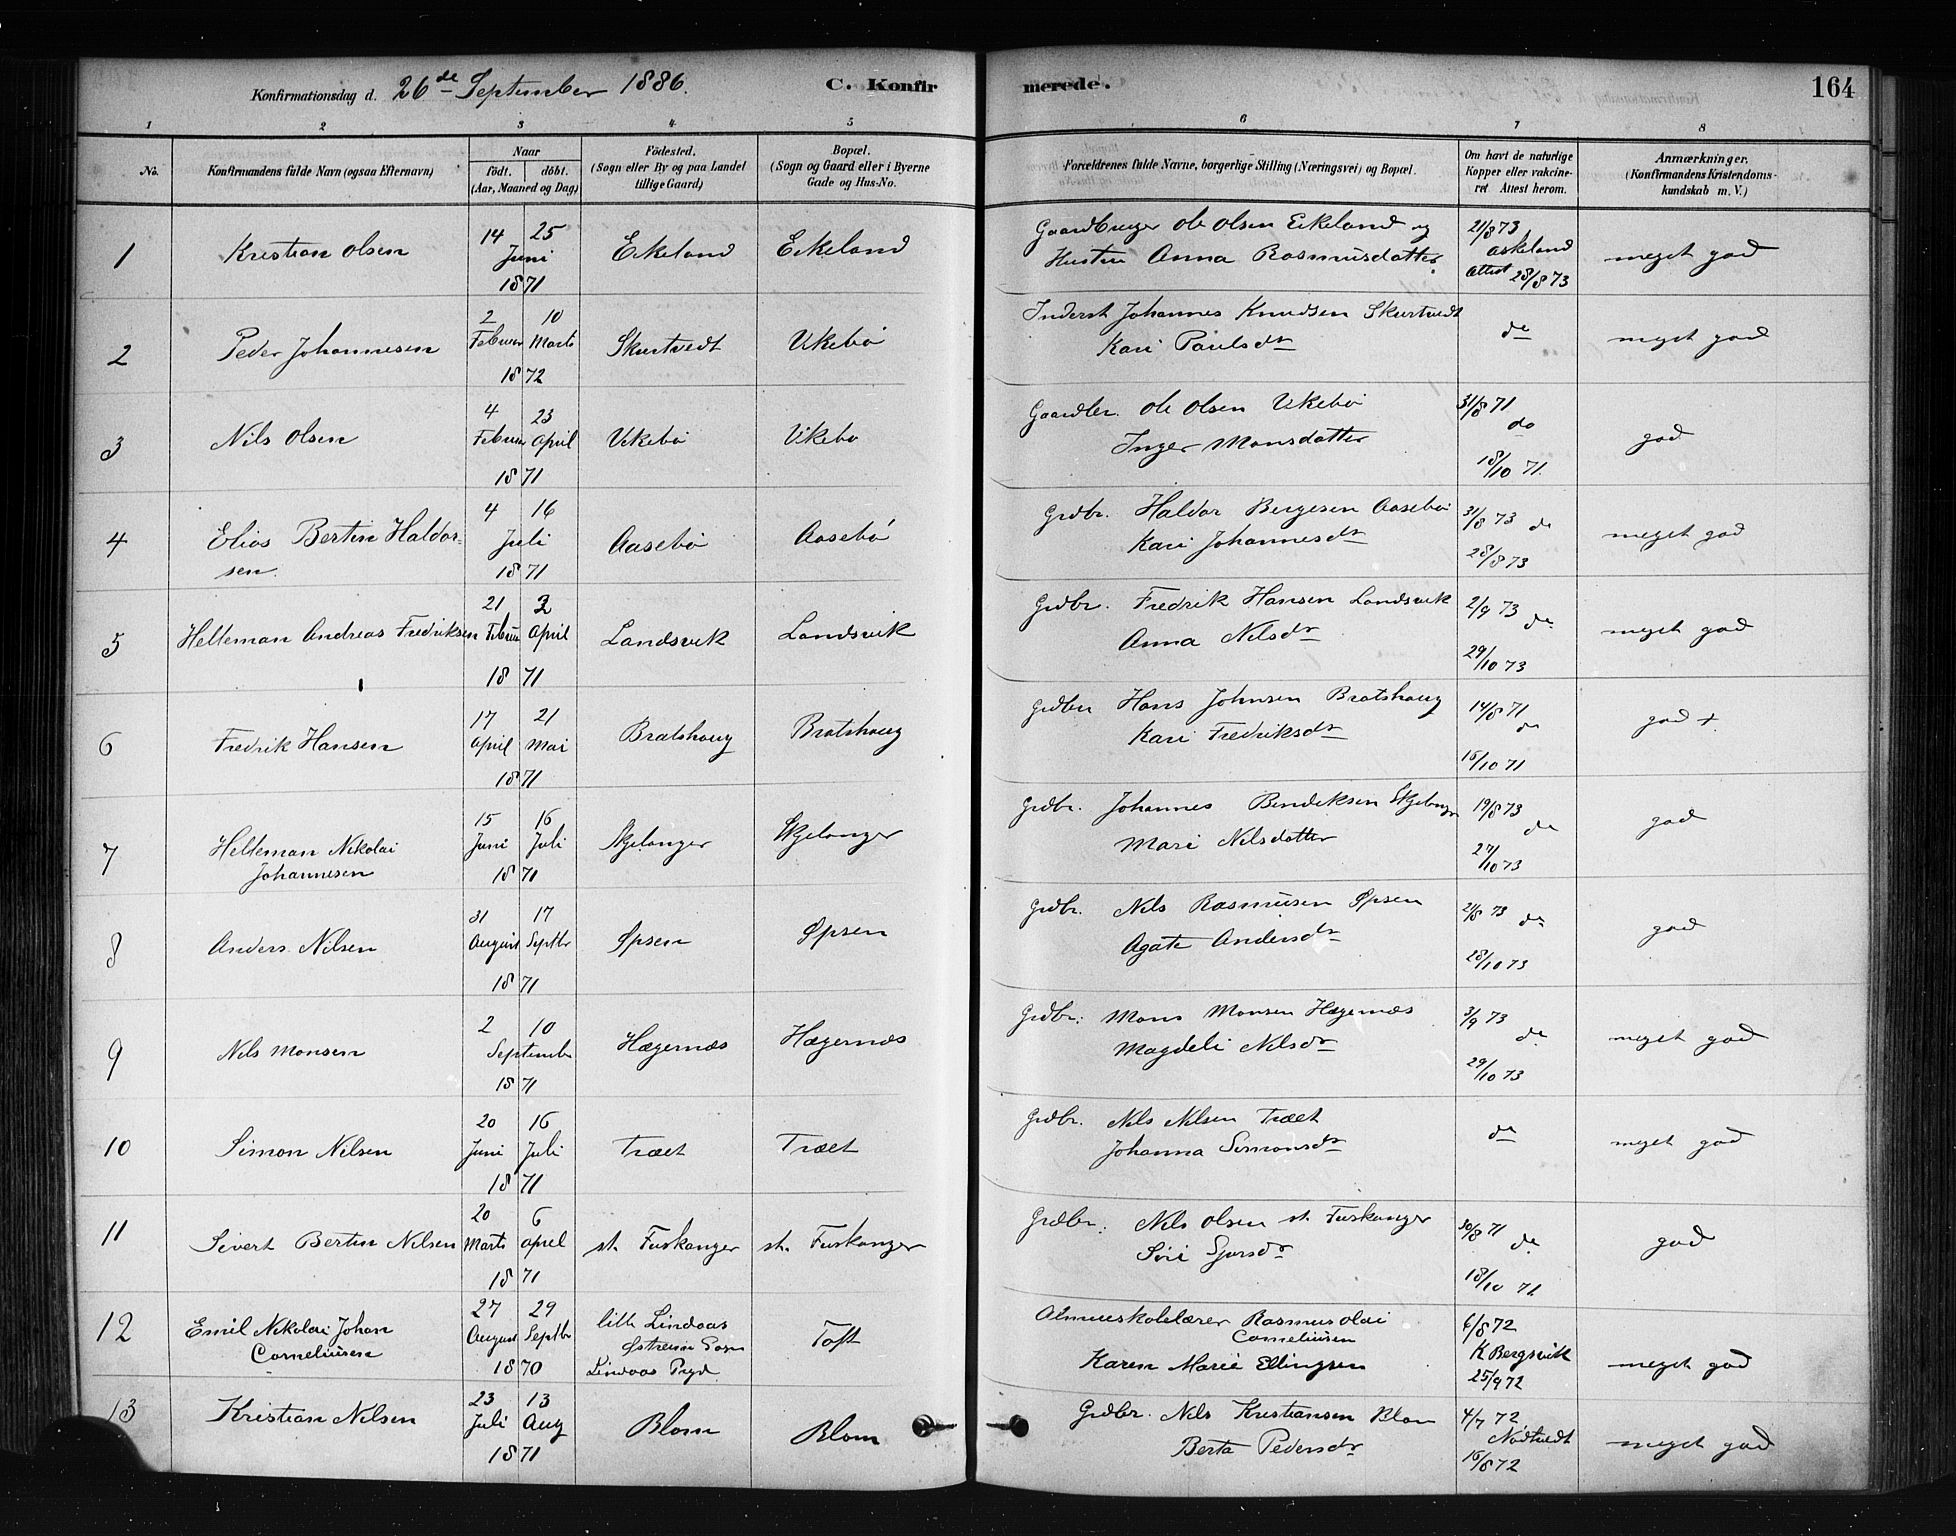 Konfirmationsdag d. 26de September 1886. C. Konfirmerede. 164
1 2 3 4 5 6 7 8
No. Konfirmandens fulde Navn (ogsaa Efternavn) Naar födt. döbt. (Aar, Maaned og Dag) Födested. (Sogn eller By og paa Landet tillige Gaard) Bopæl. (Sogn og Gaard eller i Byerne Gade og Hus-No. Forældrenes fulde Navne, borgerlige Stilling (Næringsvei) og Bopæl. Om havt de naturlige Kopper eller vakcineret Attest herom. Anmærkninger. (Konfirmandens Kristendomskundskab m. V.)
1 Kristian Olsen 14 25 Juni 1871 Eikeland Eikeland Gaardbruger Ole Olsen Eikeland og Hustru Anna Rasmusdatter 21/8 73 Askeland Attest 28/8 73 meget god
2 Peder Johannesen 2 Februar 10 Marts 1872 Skurtvedt Vikebö Inderst Johannes Knudsen Skurtvedt Kari Paulsdr do meget god
3 Nils Olsen 4 Februar 23 April 1871 Vikebö Vikebö Gaardbr. Ole Olsen Vikebö Inger Monsdatter 31/8 71 do 18/10 71. god
4 Elias Bertin Haldorsen. 4 16 Juli 1871 Aasebö Aasebö Grdbr. Haldor Bergesen Aasebö Kari Johannesdr 31/8 73 do 28/8 73 meget god
5 Helteman Andreas Fredriksen 21 Februar 2 April 1871 Landsvik Landsvik Grdbr. Fredrik Hansen Landsvik Anna Nilsdr 2/9 73 do 29/10 73 meget god
6 Fredrik Hansen 17 April 21 Mai 1871 Bratshaug Bratshaug Grdbr Hans Johnsen Bratshaug Kari Fredriksdr 14/8 71 do 15/10 71 god +
7 Helteman Nikolai Johannesen 15 Juni 16 Juli 1871 Skjelanger Skjelanger Grdbr. Johannes Bendiksen Mari Nilsdatter 19/8 73 do 27/10 73 god
8 Anders Nilsen 31 August 17 Septbr 1871 Opsen Opsen Grdbr. Nils Rasmusen Opsen Agate Andersdr 21/8 73 do 28/10 73 god
9 Nils Monsen 2 10 Septembr 1871 Hægernæs Hægernæs Grdbr: Mons Monsen Hægernæs Magdeli Nilsdr 3/9 73 do 29/10 73 meget god
10 Simon Nilsen 20 Juni 16 Juli 1871 Træet Træet Grdbr. Nils Nilsen Træet Johanna Simonsdr do meget god
11 Sivert Bertin Nilsen 20 Marts 6 April 1871 st. Fuskanger st. Fuskanger Grdbr. Nils Olsen st. Fuskanger Siri 30/8 71 do 18/10 71. god
12 Emil Nikolai Johan Corneliusen 27 August 29 Septbr 1870 litle Lindaas Sogn Lindaas Toft Almueskolelærer Rasmus Olai Corneliusen Karen Marie Ellingsen 6/8 72 K Bergsvik 25/9 72 meget god
13 Kristian Nilsen 23 Juli 13 Aug 1871 Blom Blom Grdbr. Nils Kristiansen Blom Berta Pedersdr 4/7 72 Nodtvedt 15/8 72 meget god